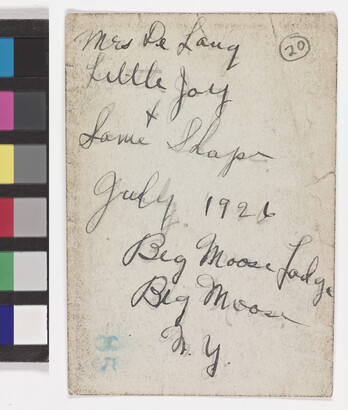 Mrs De Lang
20
Little Joy
+
Same Shap
July 1926
Big Moose Lodge
Big Moose
N.Y.